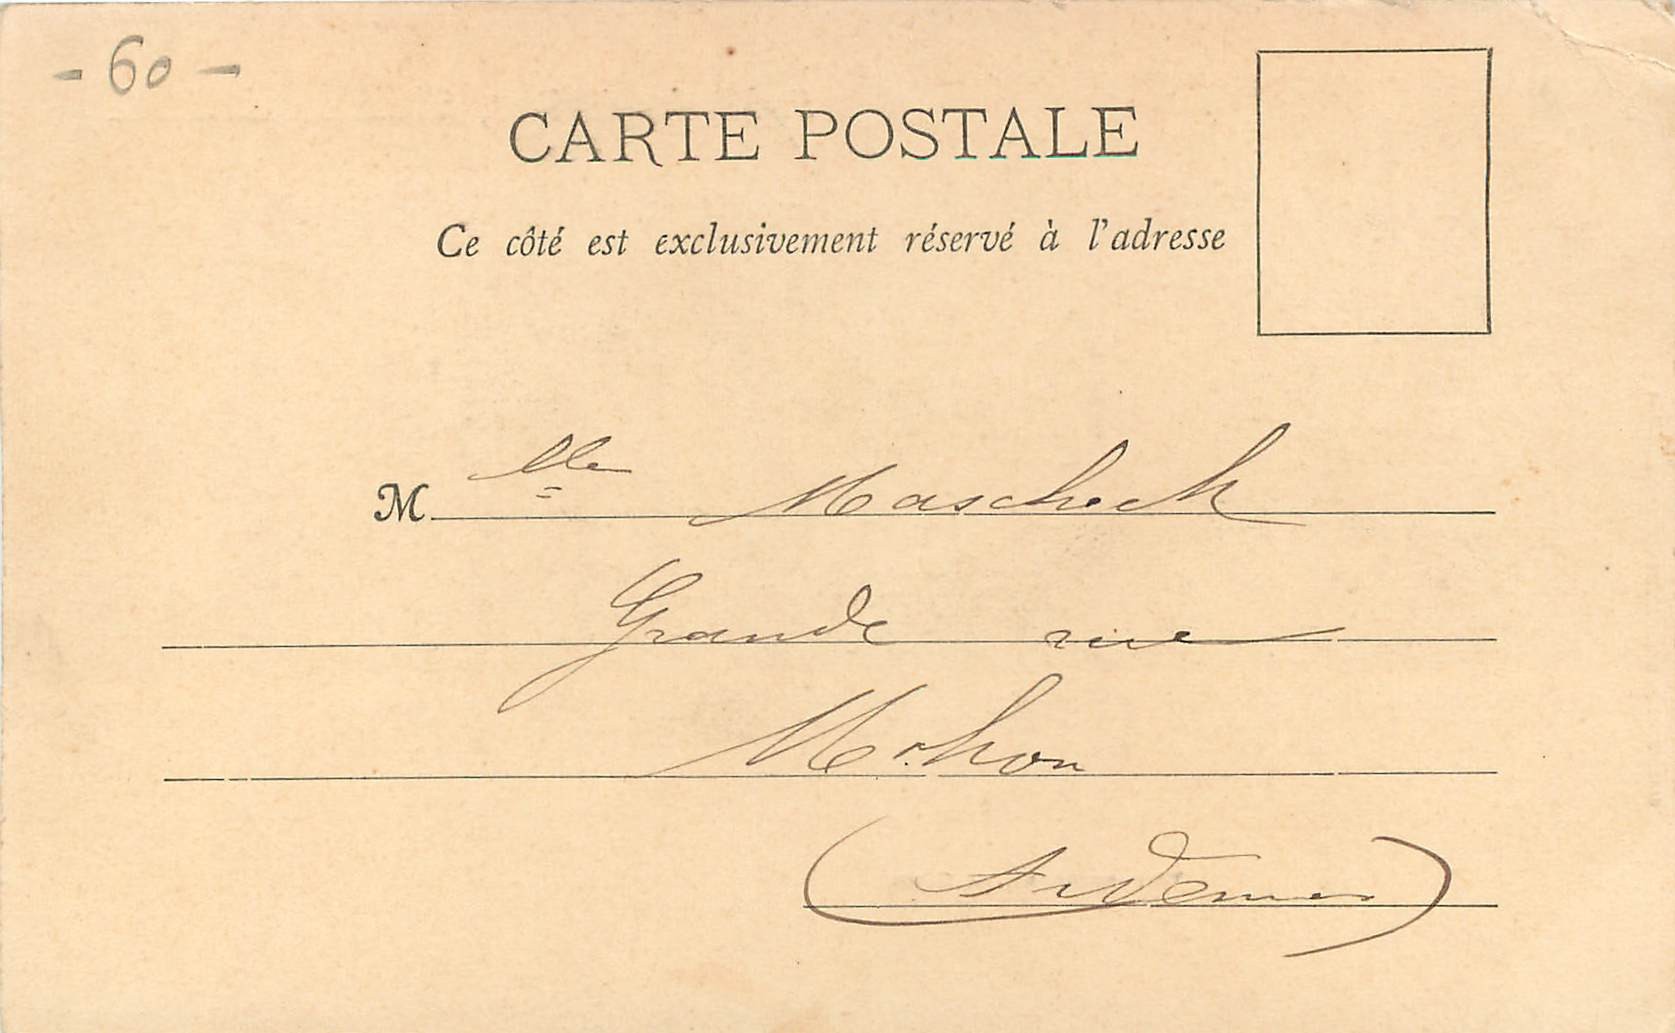 - 60 -
CARTE POSTALE
Ce côté est exclusivement réservé à l'adresse
Mlle Mascheck
Grande rue
Mohon
(Ardennes)